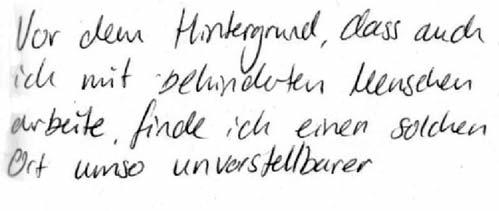 Vor dem Hintergrund, dass auch
ich mit behinderten Menschen
arbeite, finde ich einen solchen
Ort umso unvorstellbarer